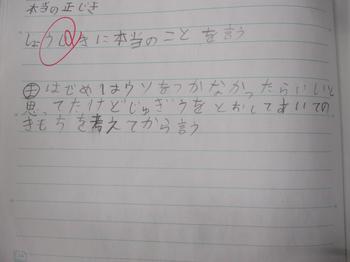 本当の正じき
しょうじきに本当のことを言う
ま はじめはウソをつかなかったらいいと
思ってたけどじゅぎょうをとおしてあいての
きもちを考えてから言う